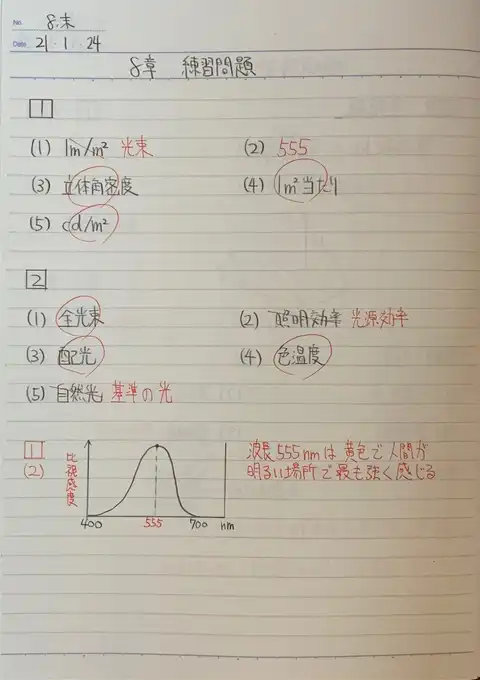 No. 8.末
Date 21・1・24
8章 練習問題
1
(1) lm/m² 光束 (2) 555
(3) 立体角密度 (4) 1m²当たり
(5) cd/m²
2
(1) 全光束 (2) 照明効率 光源効率
(3) 配光 (4) 色温度
(5) 自然光 基準の光
1
(2)
比視感度
400 555 700 nm
波長555nmは黄色で人間が
明るい場所で最も強く感じる